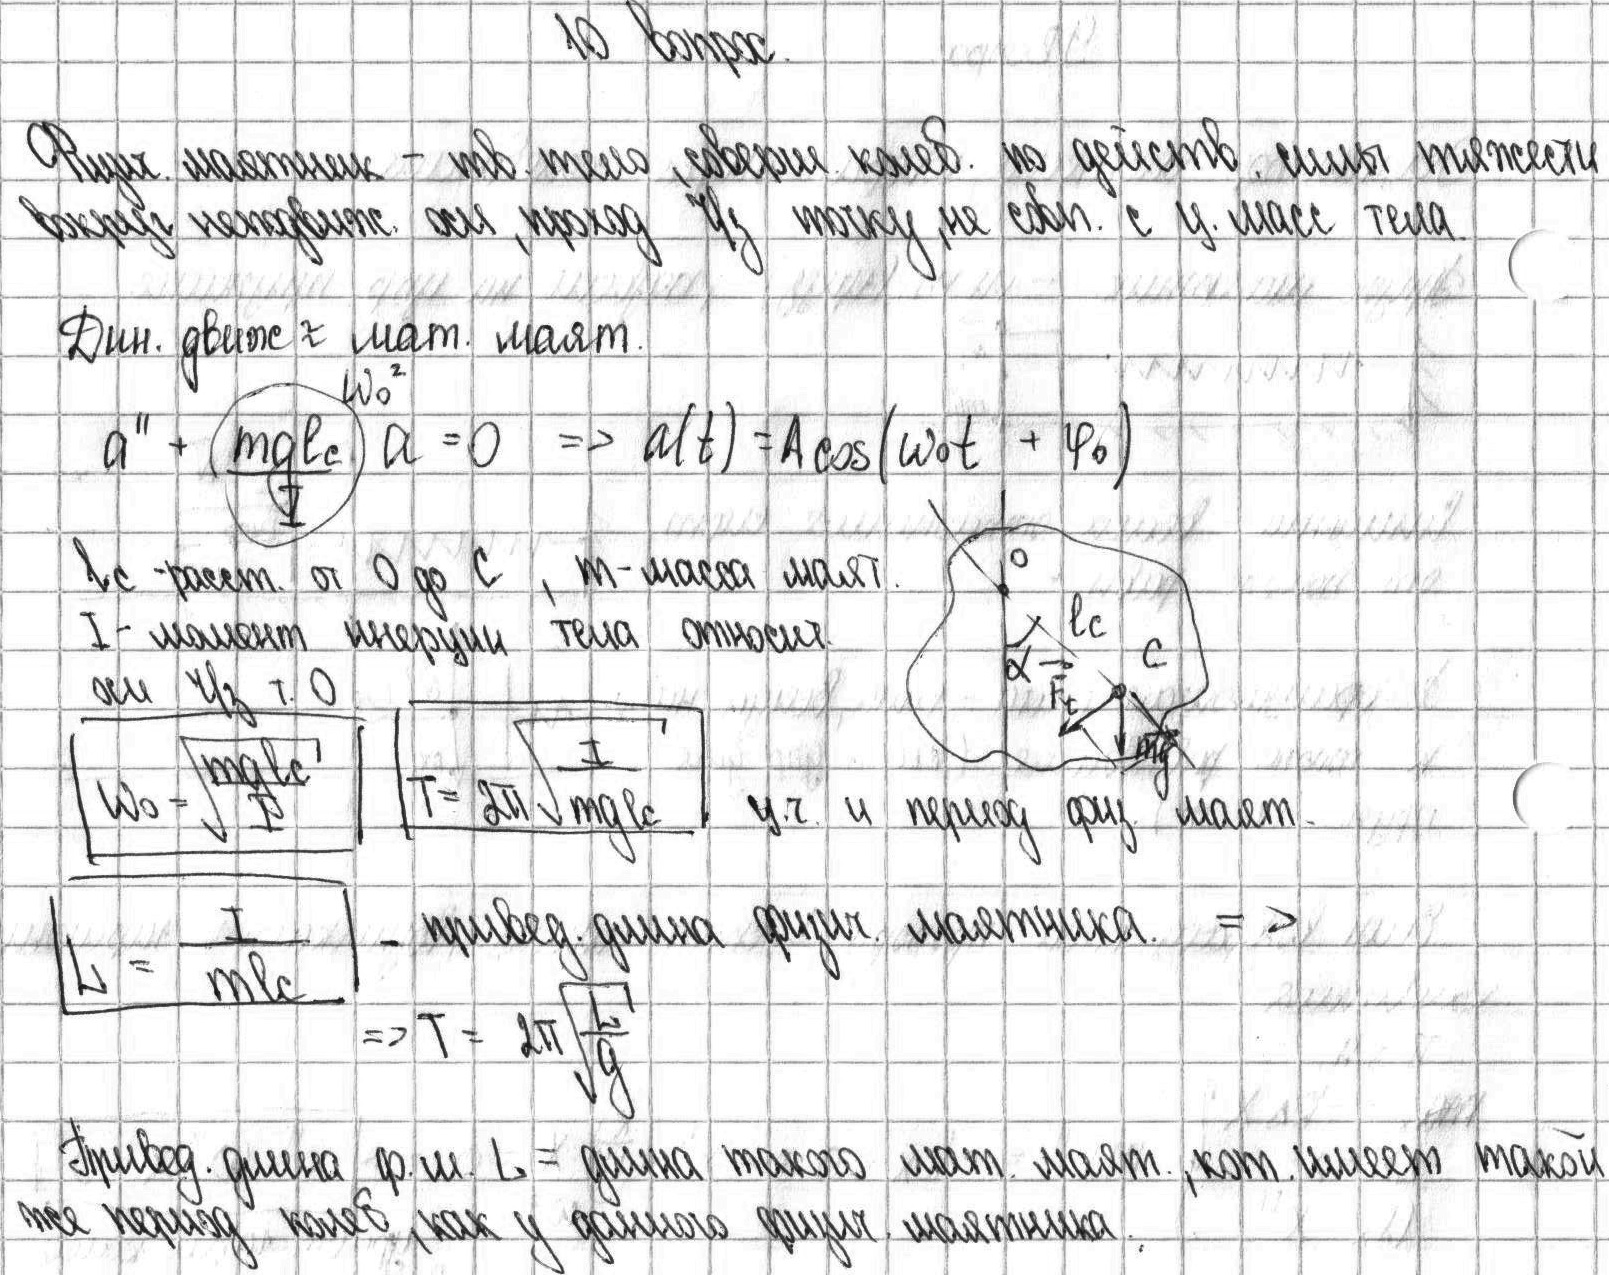 10 вопрос.
Физич. маятник - тв. тело, соверш. колеб. по действ. силы тяжести
вокруг неподвиж. оси, проход ч/з точку, не совп. с ц. масс тела.
Дин. движ ≈ мат. маят.
ω₀²
a'' + (mglc / I) a = 0 => a(t) = A cos(ω₀t + φ₀)
lc - расст. от O до C, m - масса маят.
I - момент инерции тела относит.
оси ч/з т. O
O
lc
C
α
Fτ
mg
ω₀ = √(mglc / I) T = 2π √(I / mglc) ц.ч. и период физ. маят.
L = I / mlc - привед. длина физич. маятника. =>
=> T = 2π √(L / g)
Привед. длина ф.м. L = длина такого мат. маят., кот. имеет такой
же период колеб, как у данного физич. маятника.